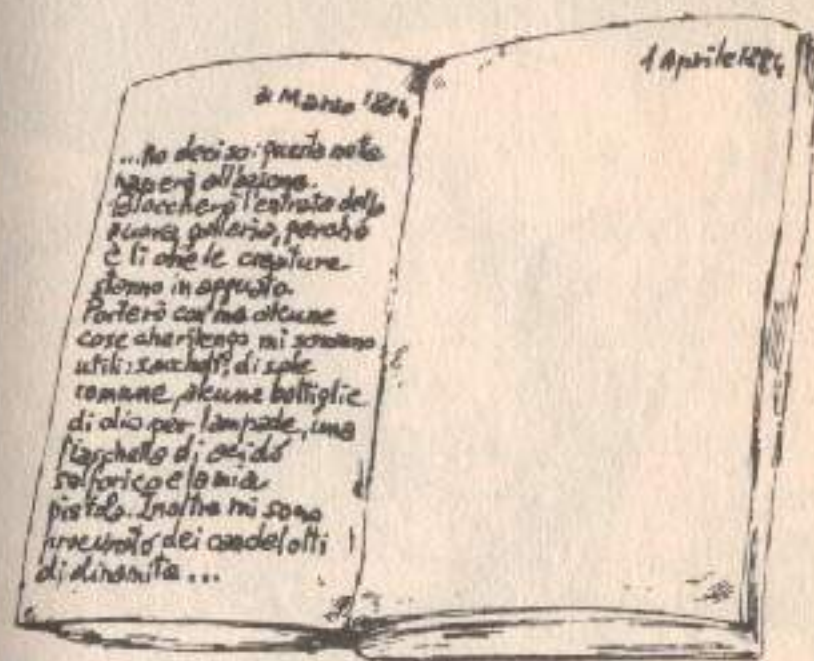 Marzo 1884
...ho deciso: questa notte
all'azione.
Bloccherò l'entrata della
nuova galleria, perché
è lì che le creature
stanno in agguato.
Porterò con me alcune
cose che ritengo mi saranno
utili: sacchetti di sale
comune, alcune bottiglie
di olio per lampade, una
fiaschetta di acido
solforico e la mia
pistola. Inoltre mi sono
procurato dei candelotti
di dinamite...
1 Aprile 1884